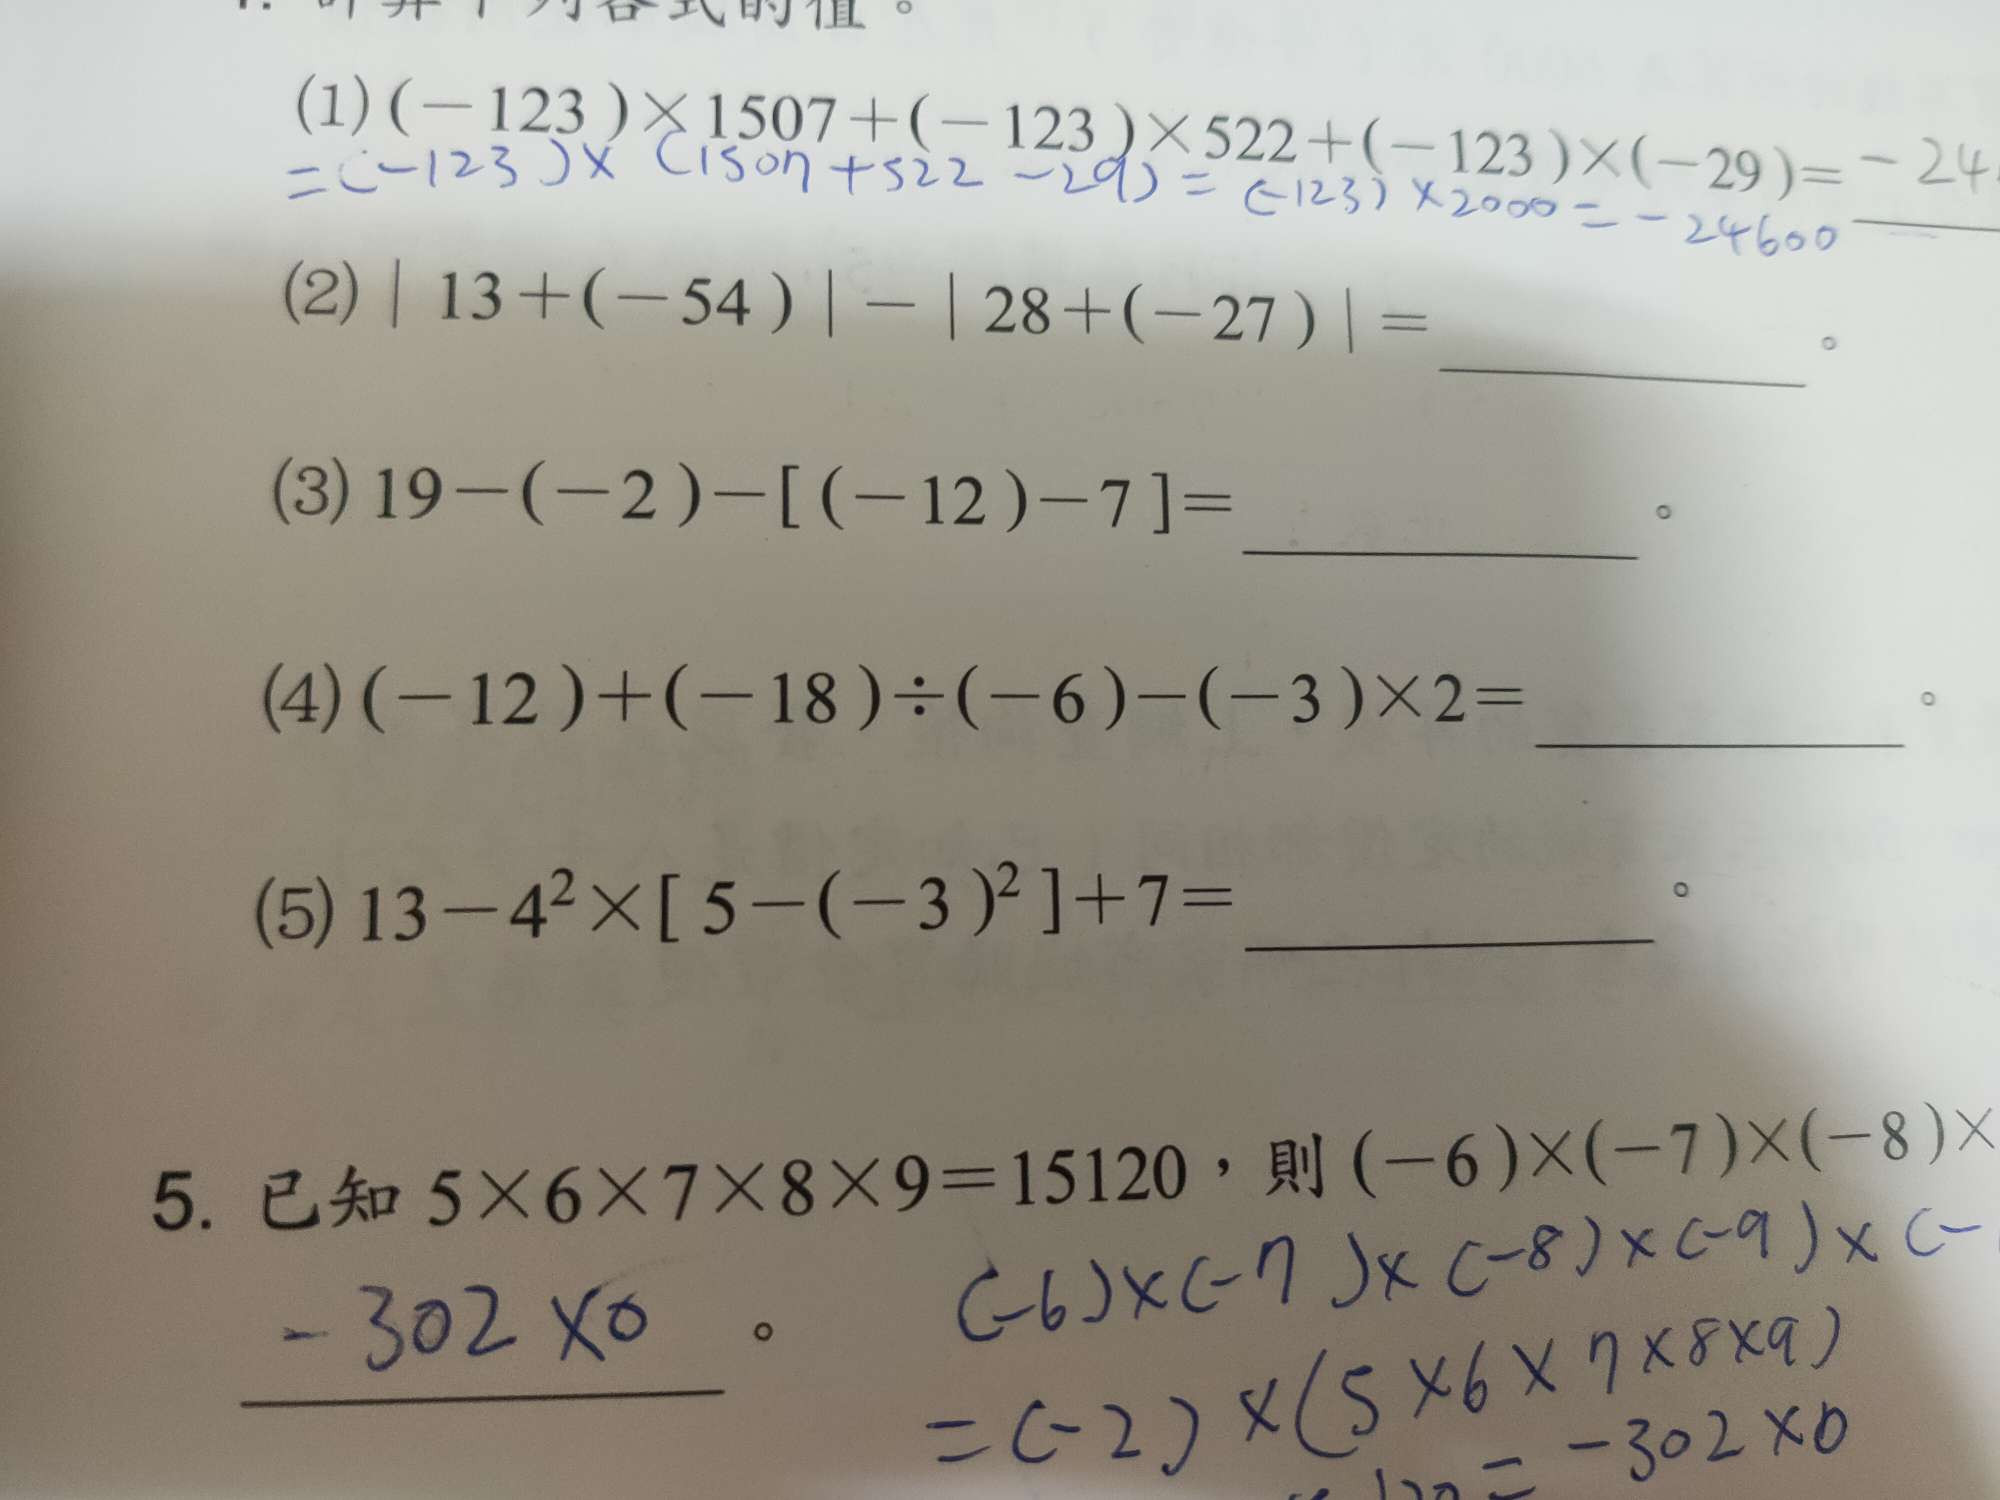 計算下列各式的值。
(1)(-123)×1507+(-123)×522+(-123)×(-29)=-24
=(-123)×(1507+522-29)=(-123)×2000=-24600
(2)|13+(-54)|-|28+(-27)|=。
(3)19-(-2)-[(-12)-7]=。
(4)(-12)+(-18)÷(-6)-(-3)×2=。
(5)13-4²×[5-(-3)²]+7=。
5. 已知 5×6×7×8×9=15120,則(-6)×(-7)×(-8)×
(-6)×(-7)×(-8)×(-9)×(-
-302×0。
=(-2)×(5×6×7×8×9)
=-302×0